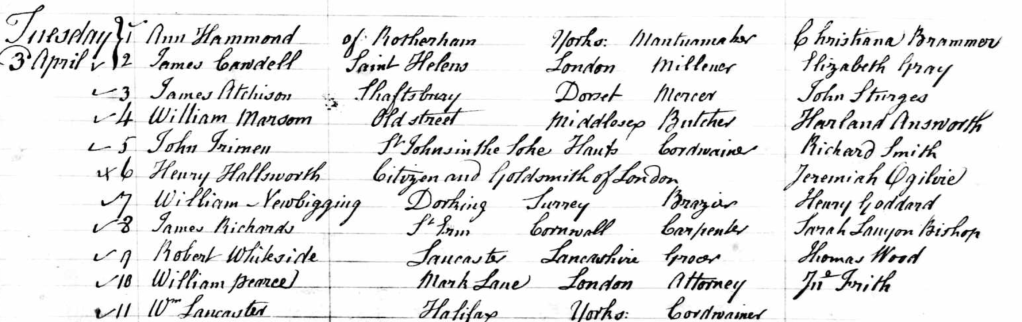 Tuesday 1 Ann Hammond of Rotherham Yorks: Mantuamaker Christiana Brammer
3d April 2 James Cawdell Saint Helens London Millener Elizabeth Gray
3 James Atchison Shaftsbury Dorset Mercer John Sturges
4 William Marsom Old street Middlesex Butcher Harland Answorth
5 John Trimen St Johns in the Sohe Hants Cordwainer Richard Smith
6 Henry Hallsworth Citizen and Goldsmith of London Jeremiah Ogilvie
7 William Newbigging Dorking Surrey Brazier Henry Goddard
8 James Richards St Erm Cornwall Carpenter Sarah Lanyon Bishop
9 Robert Whiteside Lancaster Lancashire Grocer Thomas Wood
10 William Pearce Mark Lane London Attorney Jn Frith
11 Wm Lancaster Halifax Yorks: Cordwainer